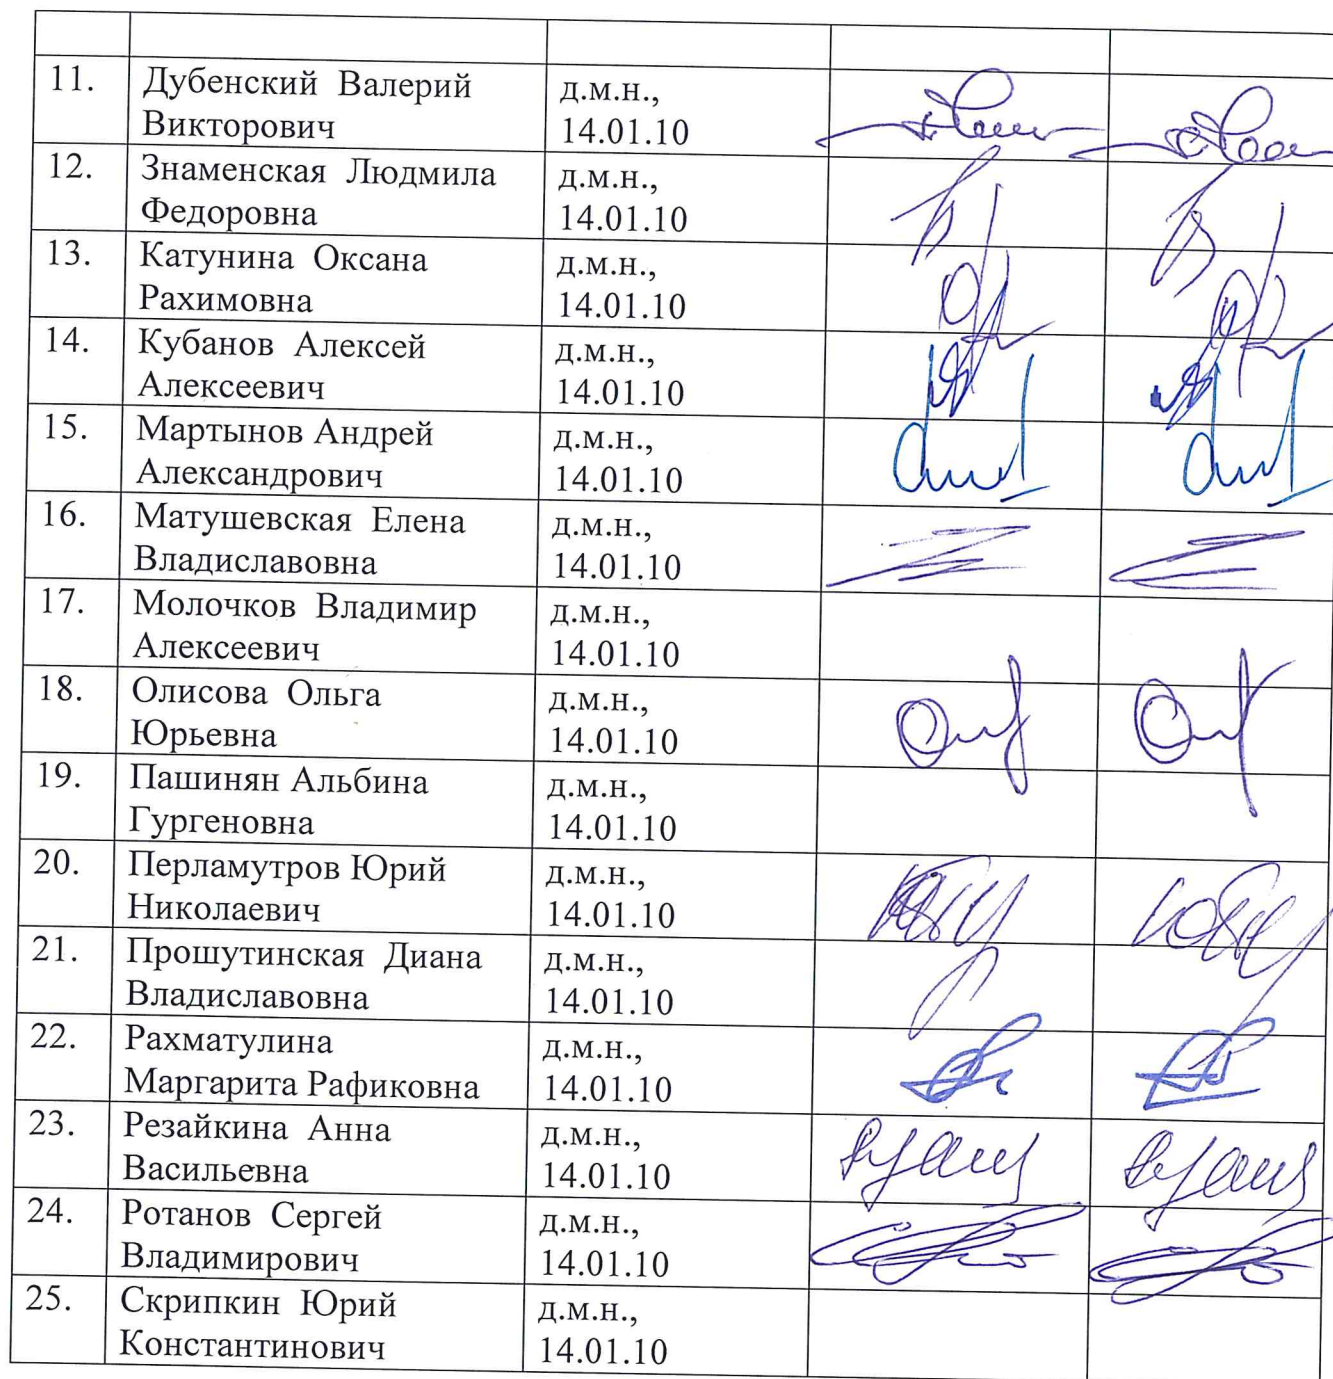 11. Дубенский Валерий д.м.н.,
Викторович 14.01.10
12. Знаменская Людмила д.м.н.,
Федоровна 14.01.10
13. Катунина Оксана д.м.н.,
Рахимовна 14.01.10
14. Кубанов Алексей д.м.н.,
Алексеевич 14.01.10
15. Мартынов Андрей д.м.н.,
Александрович 14.01.10
16. Матушевская Елена д.м.н.,
Владиславовна 14.01.10
17. Молочков Владимир д.м.н.,
Алексеевич 14.01.10
18. Олисова Ольга д.м.н.,
Юрьевна 14.01.10
19. Пашинян Альбина д.м.н.,
Гургеновна 14.01.10
20. Перламутров Юрий д.м.н.,
Николаевич 14.01.10
21. Прошутинская Диана д.м.н.,
Владиславовна 14.01.10
22. Рахматулина д.м.н.,
Маргарита Рафиковна 14.01.10
23. Резайкина Анна д.м.н.,
Васильевна 14.01.10
24. Ротанов Сергей д.м.н.,
Владимирович 14.01.10
25. Скрипкин Юрий д.м.н.,
Константинович 14.01.10